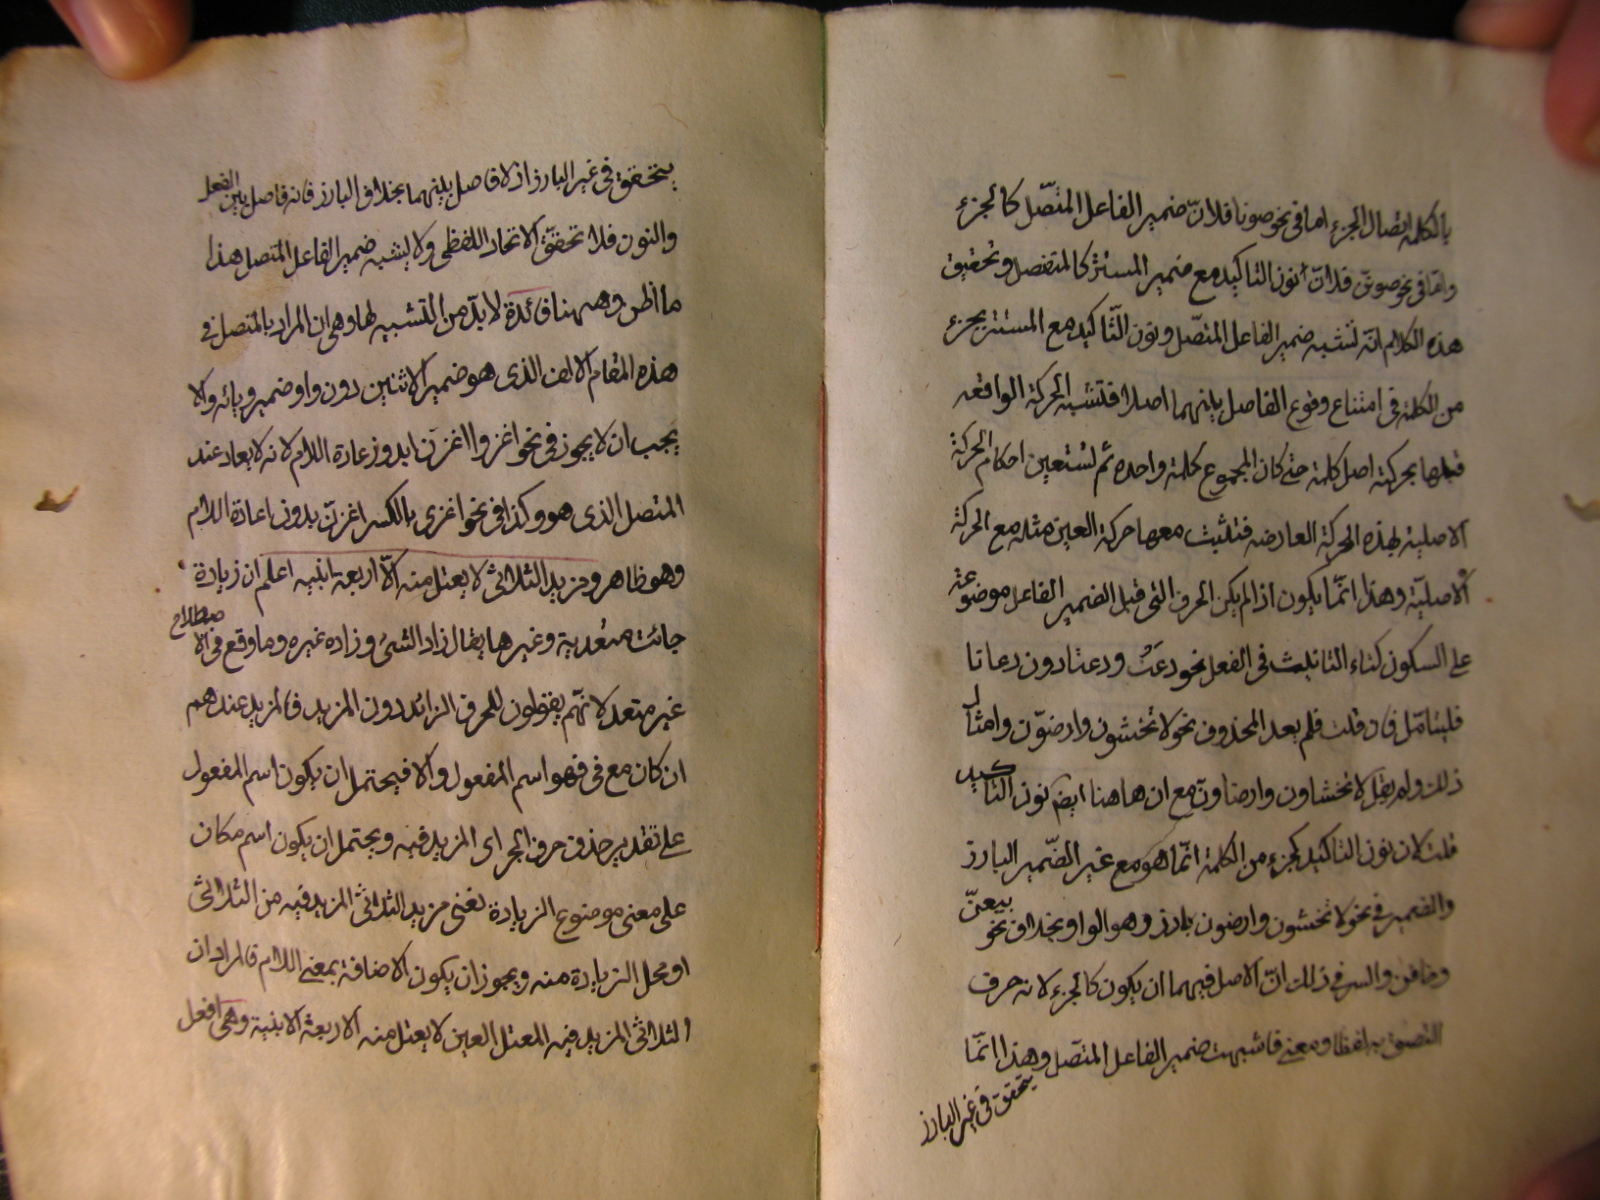 بالكلمة اتصال الجزء اما فى نحو صونا فلان ضمير الفاعل المتصّل كالجزء
وامّا فى نحو صونن فلانّ نون التاكيد مع ضمير المستتر كالمتصل وتحقيق
هذه الكلام انّه تشبه ضمير الفاعل المتصّل ونون التّاكيد مع المستتر بجزء
من الكلمة فى امتناع وقوع الفاصل بينهما اصلا فتشبه الحركة الواقعه
قبلها بحركة اصل كلمة حتى كان المجموع كلمة واحده ثم تستعين احكام الحركة
الاصلية لهذه الحركة العارضه فتثبت معها حركة العين مثله مع الحركة
الاصليّة وهذا انّما يكون اذا لم يكن الحرف التى قبل الضمير الفاعل موضوعة
على السكون كتاء التانيث فى الفعل نحو دعَتْ ودعتا دون دعاتا
فليتامّل فان قلت فلم يعد المحذوف نحو لا تخشون وارضوّن وامثال
ذلك ولم يقل لا تخشاون وارضاونّ مع ان هاهنا ايضم نون التاكيد
قلت لان نون التاكيد كجزء من الكلمة انّما هو مع غير الضّمير البارز
والضمير فى نحو لا تخشون وارضون بارز وهو الواو بخلاف نحو بيعنّ
وخافن والسر فى ذلك انّ الاصل فيهما ان يكون كالجزء لانه حرف
التصق به لفظا ومعنى فاشبهت ضمير الفاعل المتصّل وهذا انّما
يتحقق فى غير البارز
يتحقق فى غير البارز اذ لا فاصل بينهما بخلاف البارز فانه فاصل بين الفعل
والنون فلا تحقّق الاتحاد اللفظى ولا يشبه ضمير الفاعل المتصل هذا
ما اظن وههنا فائدة لا بدّ من التشبيه لها وهى ان المراد بالمتصل فى
هذه المقام الالف الذى هو ضمير الاثنين دون واو ضمير ويائه والا
يجب ان لا يجوز فى نحو اغزوا اغزن بدون عادة اللام لانه لا يعاد عند
المتصل الذى هو وكذا فى نحو اغزى بالكسر اغزنّ بدون اعادة اللام
وهو ظاهر ومزيد الثلاثى لا يعتل منه الّا اربعة ابنيه اعلم ان زيادة
جائت متعدية وغيرها يقال زاد الشئ وزاده غيره وما وقع فى الاصطلاح
غير متعد لانهّم يقولون للحرف الزائد دون المزيد فالمزيد عندهم
ان كان مع فى فهو اسم المفعول والا فيحتمل ان يكون اسم المفعول
على تقدير حذف حرف الجر اى المزيد فيه ويحتمل ان يكون اسم مكان
على معنى موضوع الزيادة تعنى مزيد الثلاثى المزيد فيه من الثلاثى
او محل الزيادة منه ويجوز ان يكون الاضافة بمعنى اللام فالمراد ان
الثلاثى المزيد فيه المعتل العين لا يعتل منه الاربعة الابنية وهى افعل